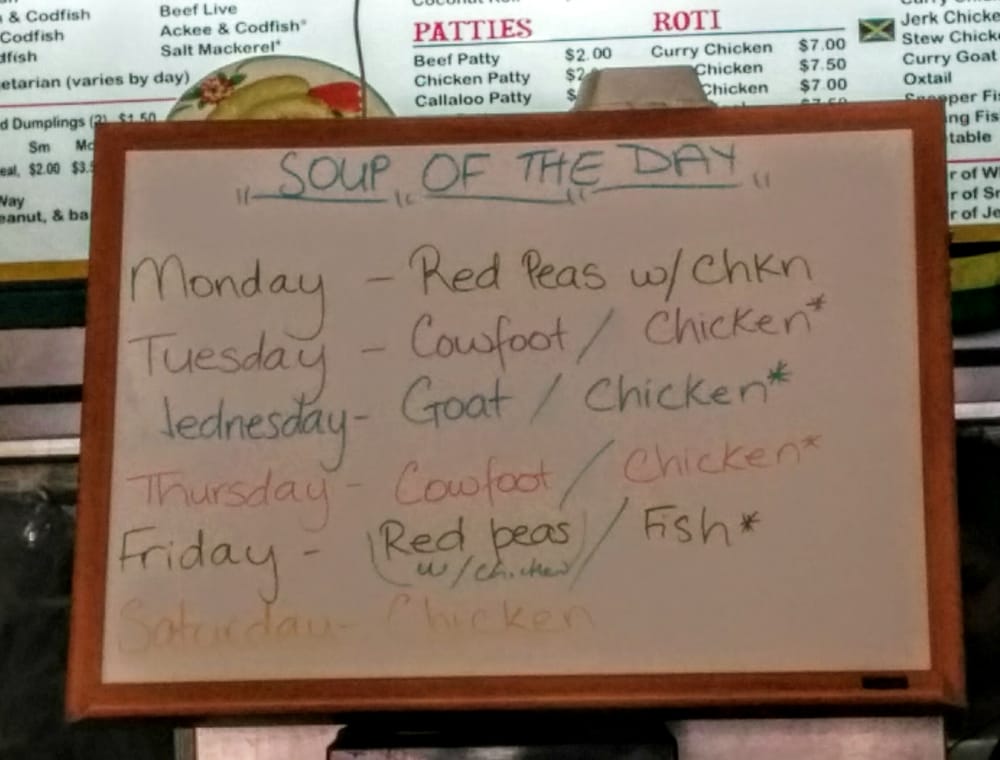 & Codfish
Codfish
Beef Live
Ackee & Codfish*
Salt Mackerel*
(varies by day)
d Dumplings (2) $1.50
Sm
$2.00
Way
eanut, & ba
PATTIES
Beef Patty $2.00
Chicken Patty
Callaloo Patty
ROTI
Curry Chicken $7.00
Chicken $7.50
Chicken $7.00
Jerk Chicke
Stew Chick
Curry Goat
Oxtail
"SOUP" OF THE" DAY"
Monday - Red Peas w/ Chkn
Tuesday - Cowfoot / Chicken*
Wednesday - Goat / Chicken*
Thursday - Cowfoot / Chicken*
Friday - (Red peas w/ chicken) / Fish*
Saturday - Chicken